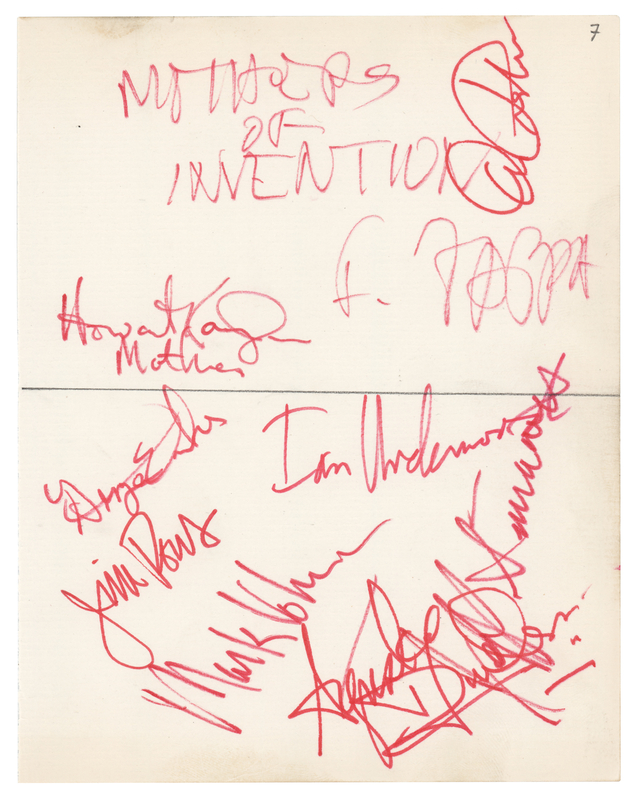 7
MOTHERS
OF
INVENTION
F. ZAPPA
Howard Kaylan
Mother
Ian Underwood
Jim Pons
Mark Volman
Aynsley
Dunbar